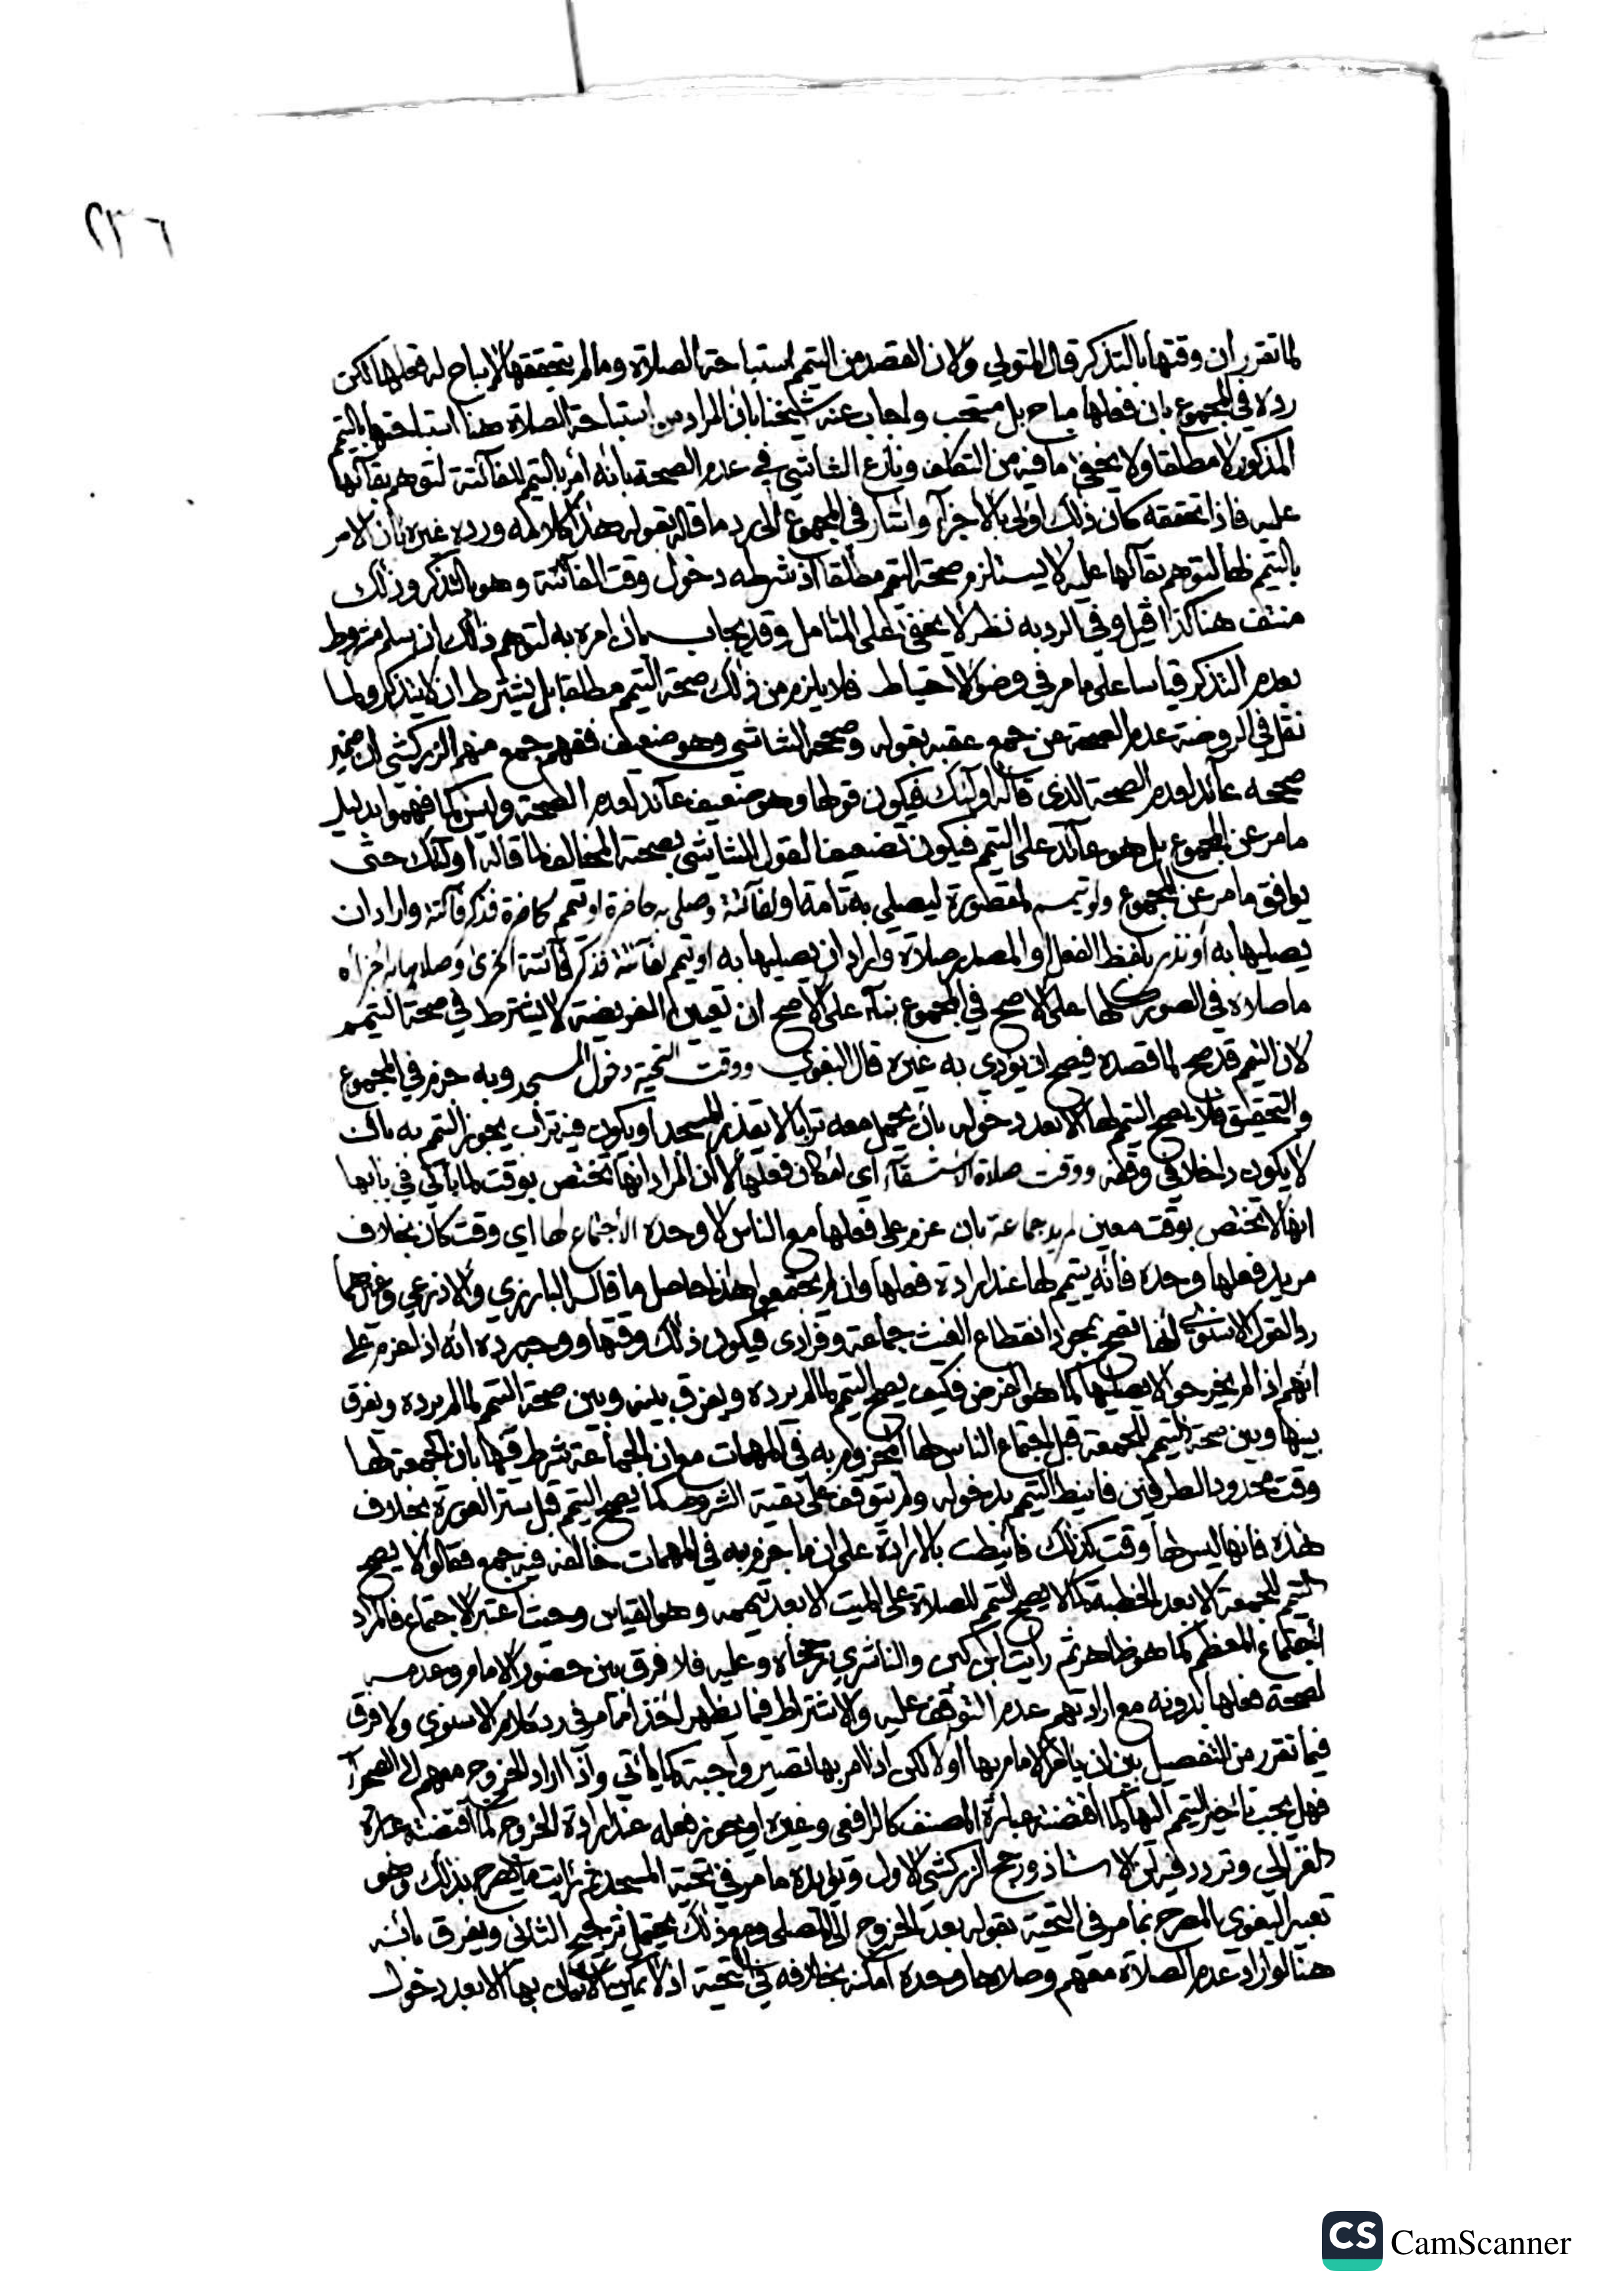 ٢٣٦
لما تقرر ان وقتها بالتذكر قال المتولي ولان القصد من التيمم استباحة الصلاة وما لم يتحققها لا يباح له فعلها لكن
رده في المجموع بان فعلها مباح بل مستحب واجاب عنه شيخنا بان المراد من استباحة الصلاة هنا استباحتها بالتيمم
المذكور لا مطلقا ولا يخفى ما فيه من التكلف ونازع الشاشي في عدم الصحة بانه امر بالتيمم للفائتة لتوهم بقائها
عليه فاذا تحققه كان ذلك اولى بالاجزاء واشار في المجموع الى رد ما قاله بقوله هذا كلامه ورده غيره بان الامر
بالتيمم لها لتوهم بقائها عليه لا يستلزم صحة التيمم مطلقا اذ شرطه دخول وقت الفائتة وهو بالتذكر وذلك
منتف هنا كذا قيل وفي الرد به نظر لا يخفى على المتامل وقد يجاب بان امره به لتوهم ذلك ان سلم مشروط
بعدم التذكر قياسا على ما مر في وضوء الاحتياط فلا يلزم من ذلك صحة التيمم مطلقا بل يشترط ان لا يتذكر ولما
نقل في الروضة عدم الصحة عن جمع عقبه بقوله وصححه الشاشي وهو ضعيف ففهم جمع منهم الزركشي ان ضمير
صححه عائد لعدم الصحة الذي قاله اولئك فيكون قولها وهو ضعيف عائد لعدم الصحة وليس كما فهموا بدليل
ما مر عن المجموع بل هو عائد على التيمم فيكون تضعيفا لقول الشاشي بصحته المخالف لما قاله اولئك حتى
يوافق ما مر عن المجموع ولو تيمم لمقصورة ليصلي به تامة او لفائتة وصلى به حاضرة او تيمم لحاضرة فذكر فائتة واراد ان
يصليها به او نذر بلفظ الفعل او المصدر صلاة واراد ان يصليها به او تيمم لفائتة فذكر فائتة اخرى وصلاها به اجزاه
ما صلاه في الصور كلها على الاصح في المجموع بناء على الاصح ان تعيين الفريضة لا يشترط في صحة التيمم
لان التيمم قد صح لما قصده فيصح ان يؤدي به غيره قال البغوي ووقت التحية دخول المسجد وبه جزم في المجموع
والتحقيق فلا يصح التيمم لها الا بعد دخوله بان يحمل معه ترابا لا يقذر المسجد او يكون فيه تراب يجوز التيمم به بان
لا يكون داخلا في وقفه ووقت صلاة الاستسقاء اي امكان فعلها لا ان المراد انها تختص بوقت لما ياتي في بابها
انها لا تختص بوقت معين لمريد جماعة بان عزم على فعلها مع الناس لا وحده الاجتماع لها اي وقت كان بخلاف
مريد فعلها وحده فانه يتيمم لها عند ارادة فعلها وان لم يجتمعوا هذا حاصل ما قاله البارزي والاذرعي وغيرهما
ردا لقول الاسنوي انها تصح بمجرد انقطاع الغيث جماعة وفرادى فيكون ذلك وقتها ووجه رده انه اذا عزم على
انهم اذا لم يخرجوا لا يصليها كما هو الفرض فكيف يصح التيمم لما لم يرده ويفرق بينه وبين صحة التيمم لما لم يرده ويفرق
بينها وبين صحة التيمم للجمعة قبل اجتماع الناس لها المجزوم به في المهمات مع ان الجماعة شرط فيها بان الجمعة لها
وقت محدود الطرفين فانيط التيمم بدخوله ولم يتوقف على بقية الشروط كما يصح التيمم قبل ستر العورة بخلاف
هذه فانها ليس لها وقت كذلك فانيطت بالارادة على ان ما جزم به في المهمات خالفه فيه جمع فقالوا لا يصح
التيمم للجمعة الا بعد الخطبة كما لا يصح التيمم للصلاة على الميت الا بعد تيممه وهو القياس وحيث اعتبر الاجتماع فالمراد
اجتماع المعظم كما هو ظاهر ثم رايت ابن كبن والناشري رجحاه وعليه فلا فرق بين حضور الامام وعدمه
لصحة فعلها بدونه مع ارادتهم عدم التوقف عليه والاشتراط فيما يظهر اخذا مما مر في رد كلام الاسنوي ولا فرق
فيما تقرر من التفصيل بين ان يامر الامام بها اولا لكن اذا امر بها تصير واجبة كما ياتي واذا اراد الخروج معهم الى الصحراء
فهل يجب تاخير التيمم اليها كما اقتضته عبارة المصنف كالرافعي وغيره او يجوز فعله عند ارادة الخروج كما اقتضته عبارة
الغزالي وتردد فيه ابن الاستاذ ورجح الزركشي الاول ويؤيده ما مر في تحية المسجد ثم رايت ما يصرح بذلك وهو
تعبير البغوي المصرح بما مر في التحية بقوله بعد الخروج الى المصلى ومع ذلك يحتمل ترجيح الثاني ويفرق بانه
هنا لو اراد عدم الصلاة معهم وصلاها وحده امكنه بخلافه في التحية اذ لا يمكن الاتيان بها الا بعد دخول
CS CamScanner